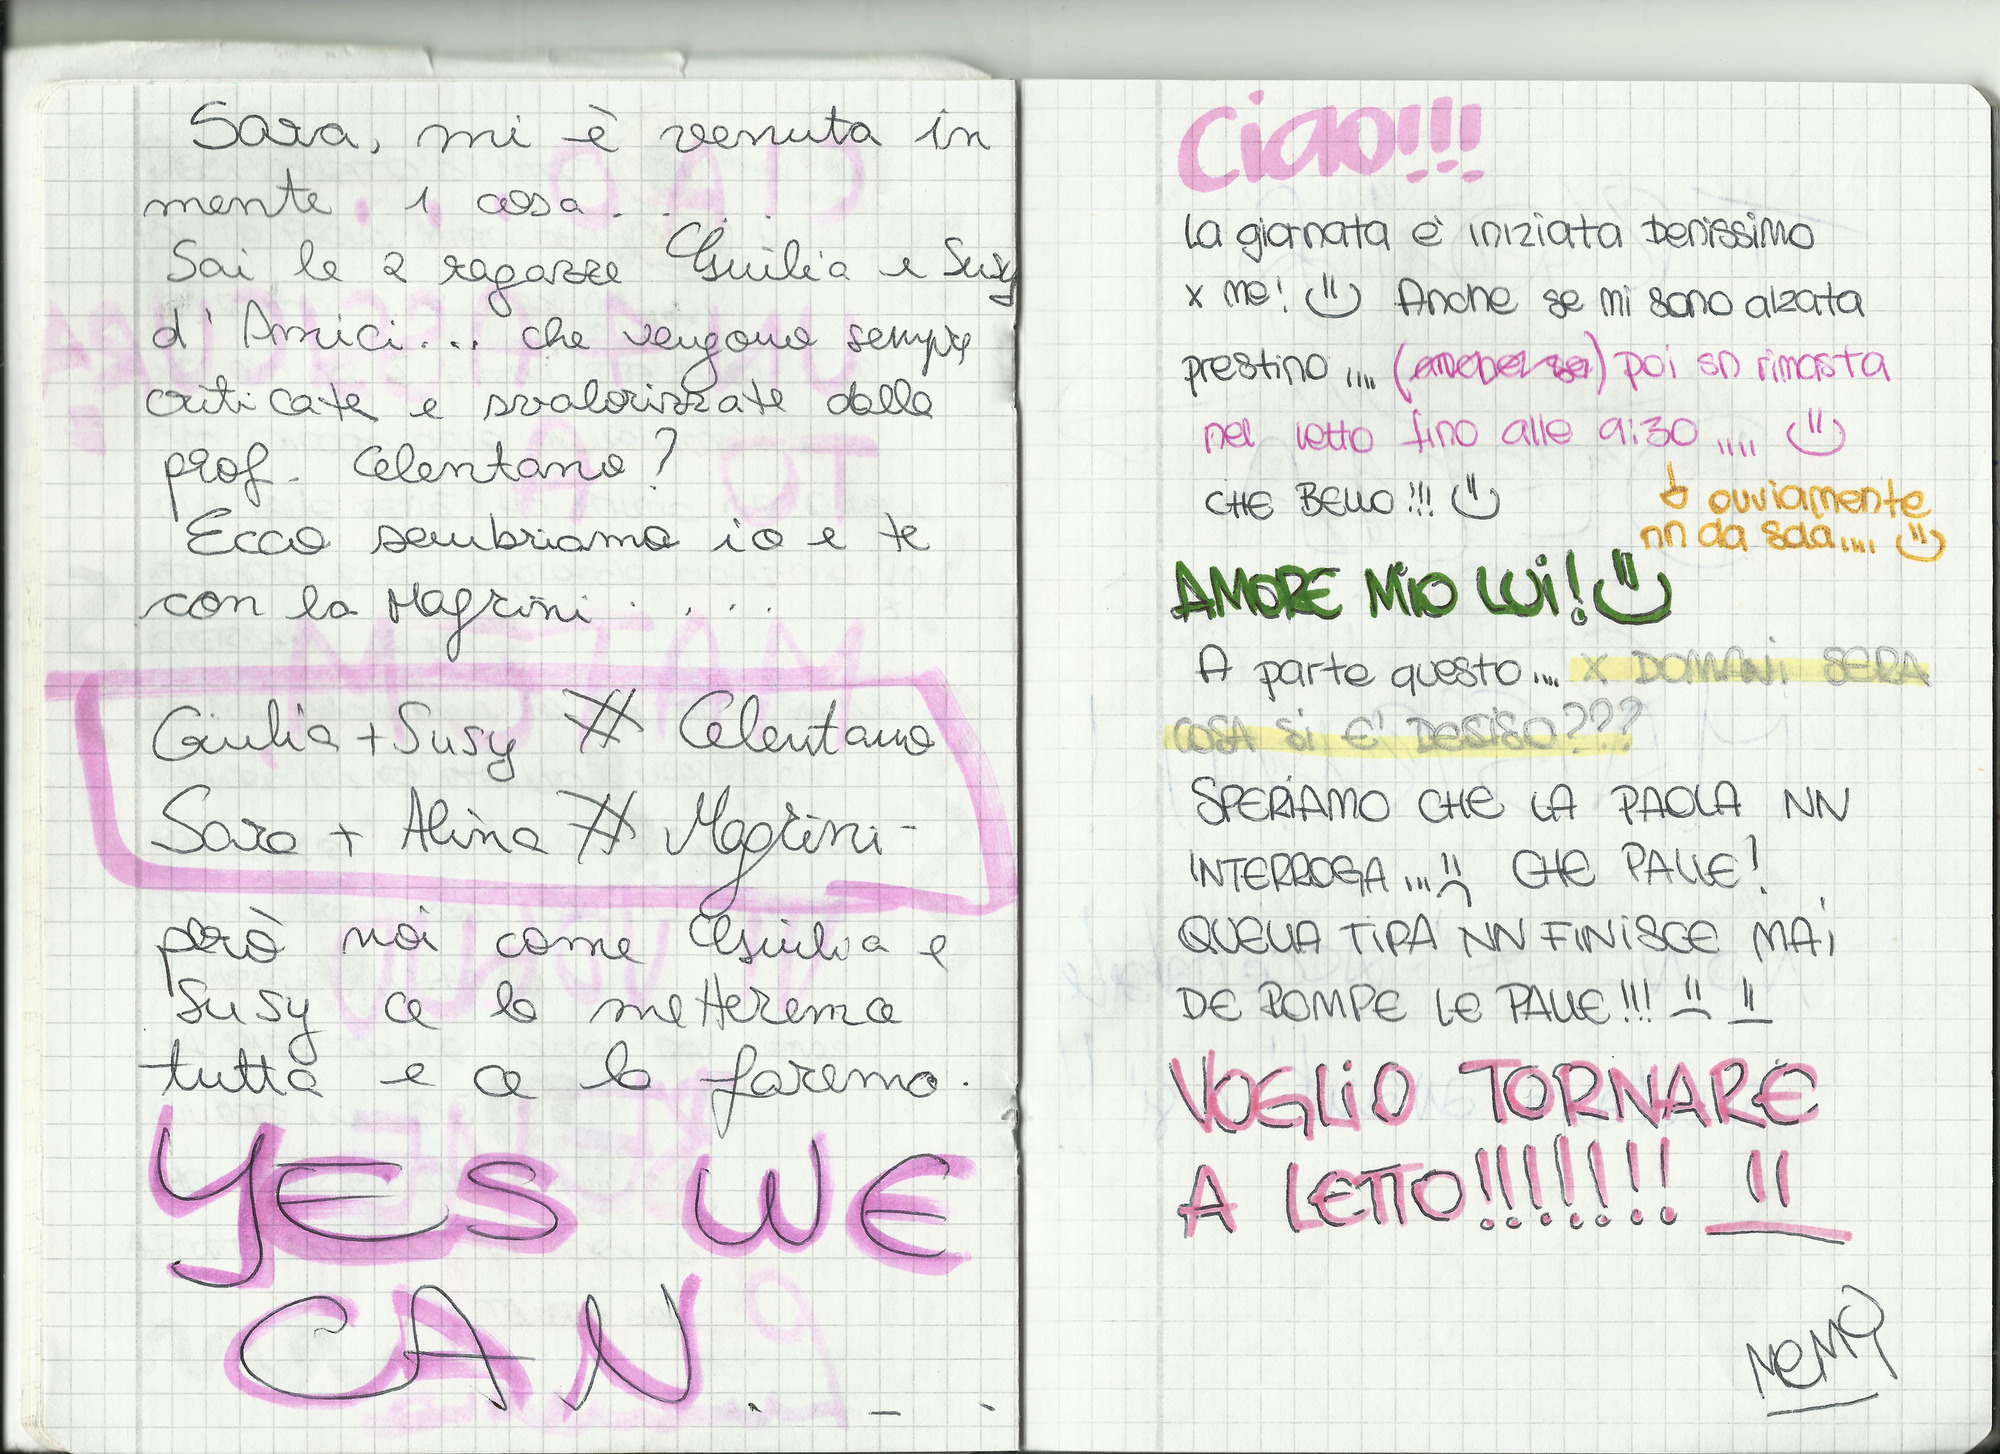 Sara, mi è venuta in
mente 1 cosa . . . .
Sai le 2 ragazze Giulia e Susy
d'Amici... che vengono sempre
criticate e svalorizzate dalla
prof. Celentano?
Ecco sembriamo io e te
con la Magrini . . . .
Giulia + Susy # Celentano
Sara + Alina # Magrini -
però noi come Giulia e
Susy ce la metteremo
tutta e ce la faremo.
YES WE
CAN. _ .
Ciao!!!
La giornata è iniziata benissimo
x me! Anche se mi sono alzata
prestino .... poi sn rimasta
nel letto fino alle 9:30 ....
CHE BELLO!!!
ovviamente
nn da sola....
AMORE MIO LUI!
A parte questo... x DOMANI SERA
COSA SI E' DESISO???
SPERIAMO CHE LA PAOLA NN
INTERROGA... CHE PALLE!
QUELLA TIPA NN FINISCE MAI
DE ROMPE LE PALLE!!!
VOGLIO TORNARE
A LETTO!!!!!!!